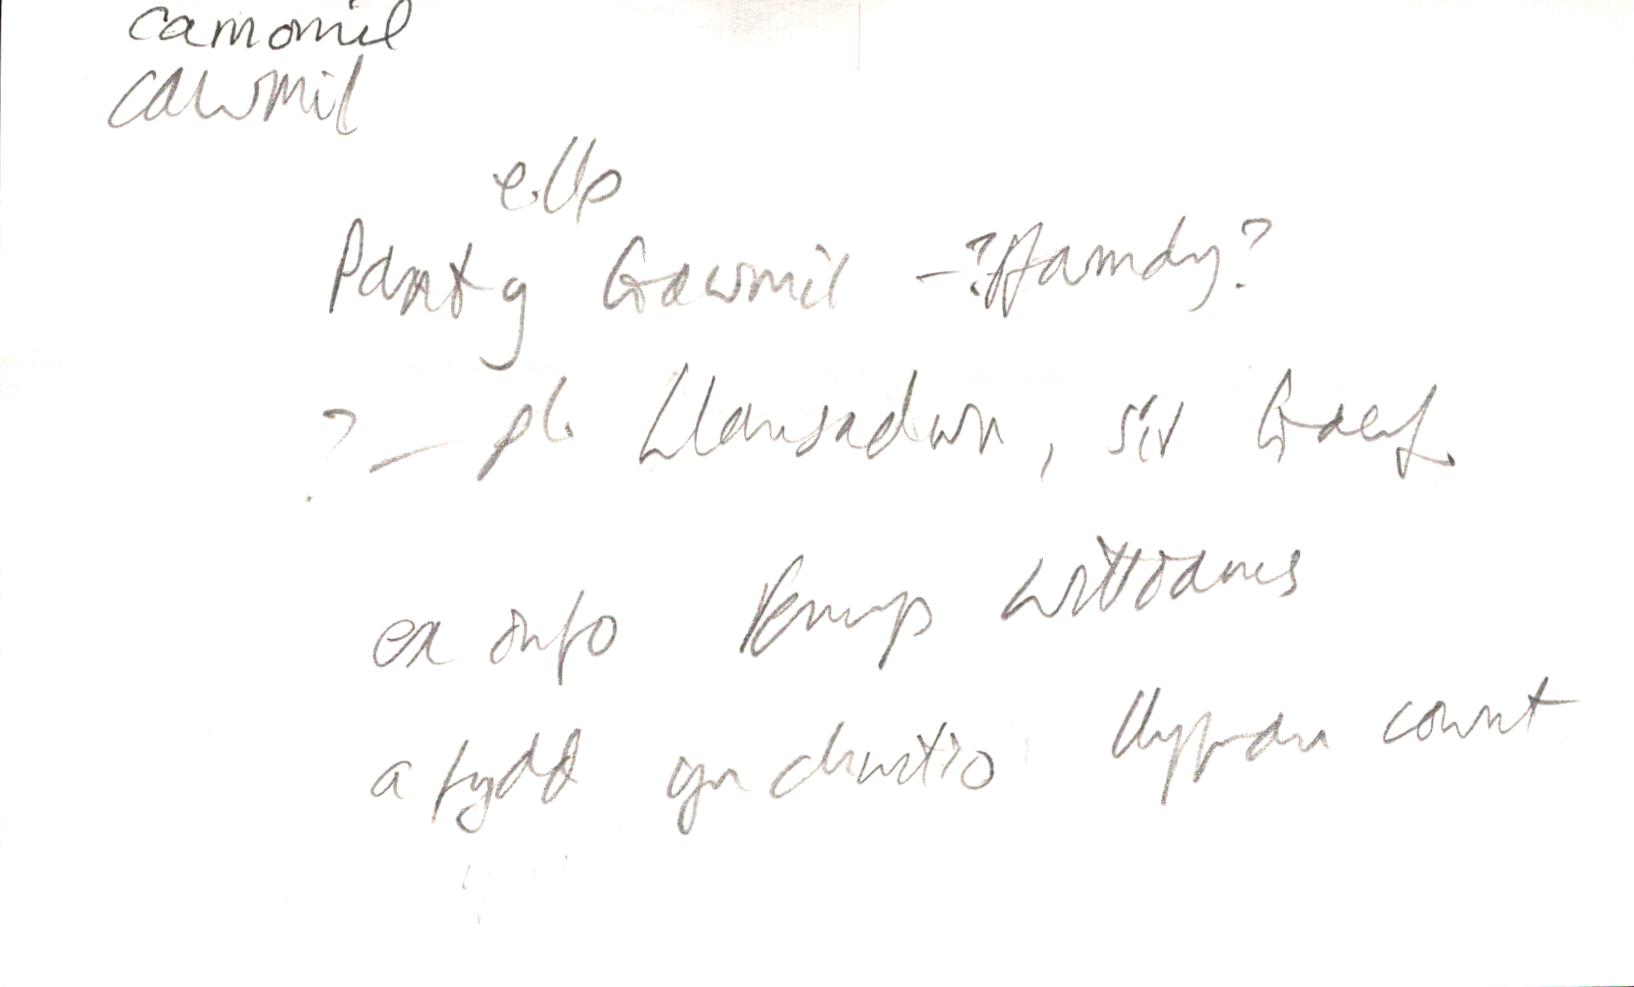 camomil
cawmil
e.llp
Pant y Gawmil – ?ffamdy?
? – pl. Llansadwrn, sir Gaerf.
ex info Williams
a fydd yn chwilio llyfrau cownt